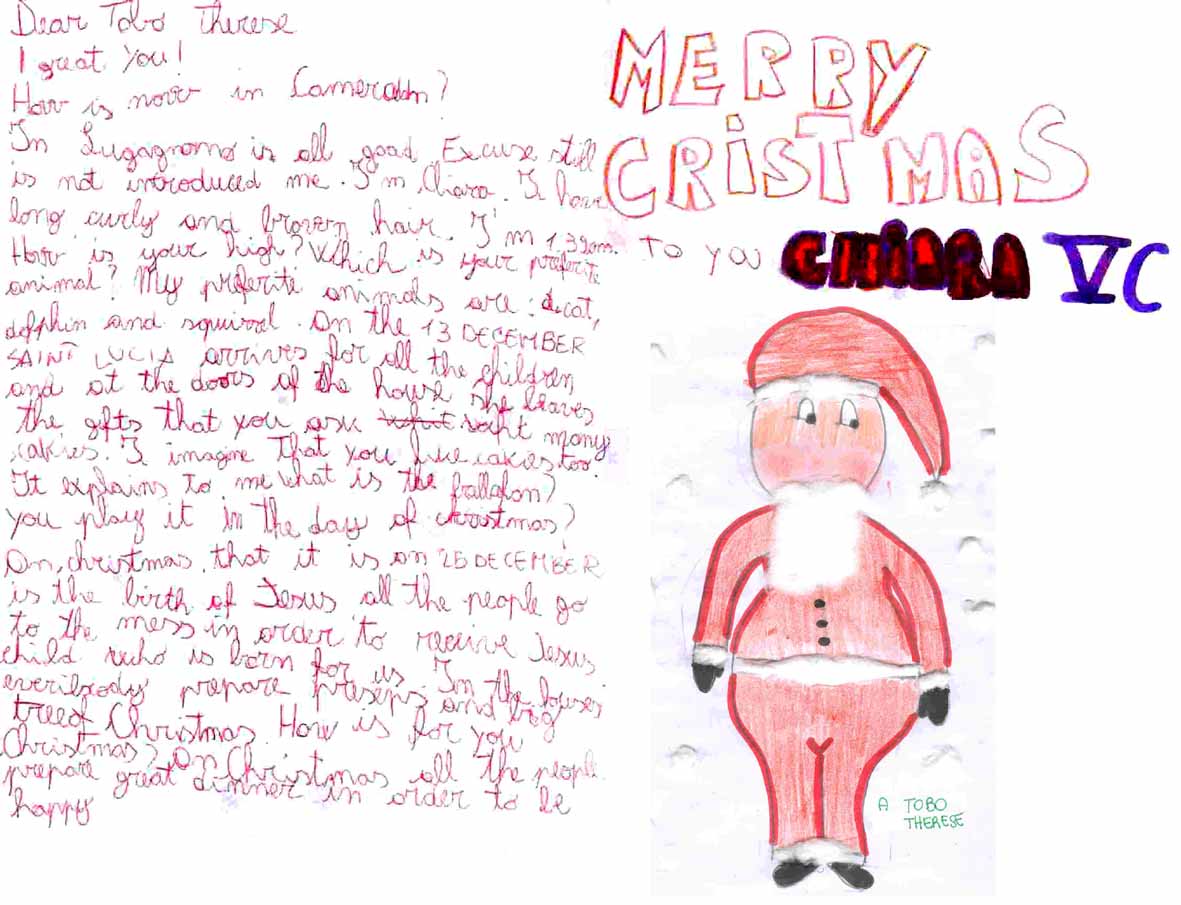 Dear Tobo Therese
I great you!
How is now in Cameraddn?
In Lugagnano is all good Excuse still
is not introduced me. I'm Chiara. I have
long curly and brown hair. I'm 1.39cm.
How is your high? Which is your preferite
animal? My preferite animals are: cat,
dolphin and squirrel. On the 13 DECEMBER
SAINT LUCIA arrives for all the children
and at the doors of the house she leaves
the gifts that you ask many
cakies. I imagine that you like cakies too
It explains to me what is the
you play it in the day of christmas?
On christmas that it is on 25 DECEMBER
is the birth of Jesus all the people go
to the mess in order to receive Jesus
child who is born for us In the houses
everibody prepare preseps and big
treed Christmas How is for you
Christmas? On Christmas all the people
prepare great dinner in order to be
happy
MERRY
CRISTMAS
TO YOU CHIARA VC
A TOBO
THERESE